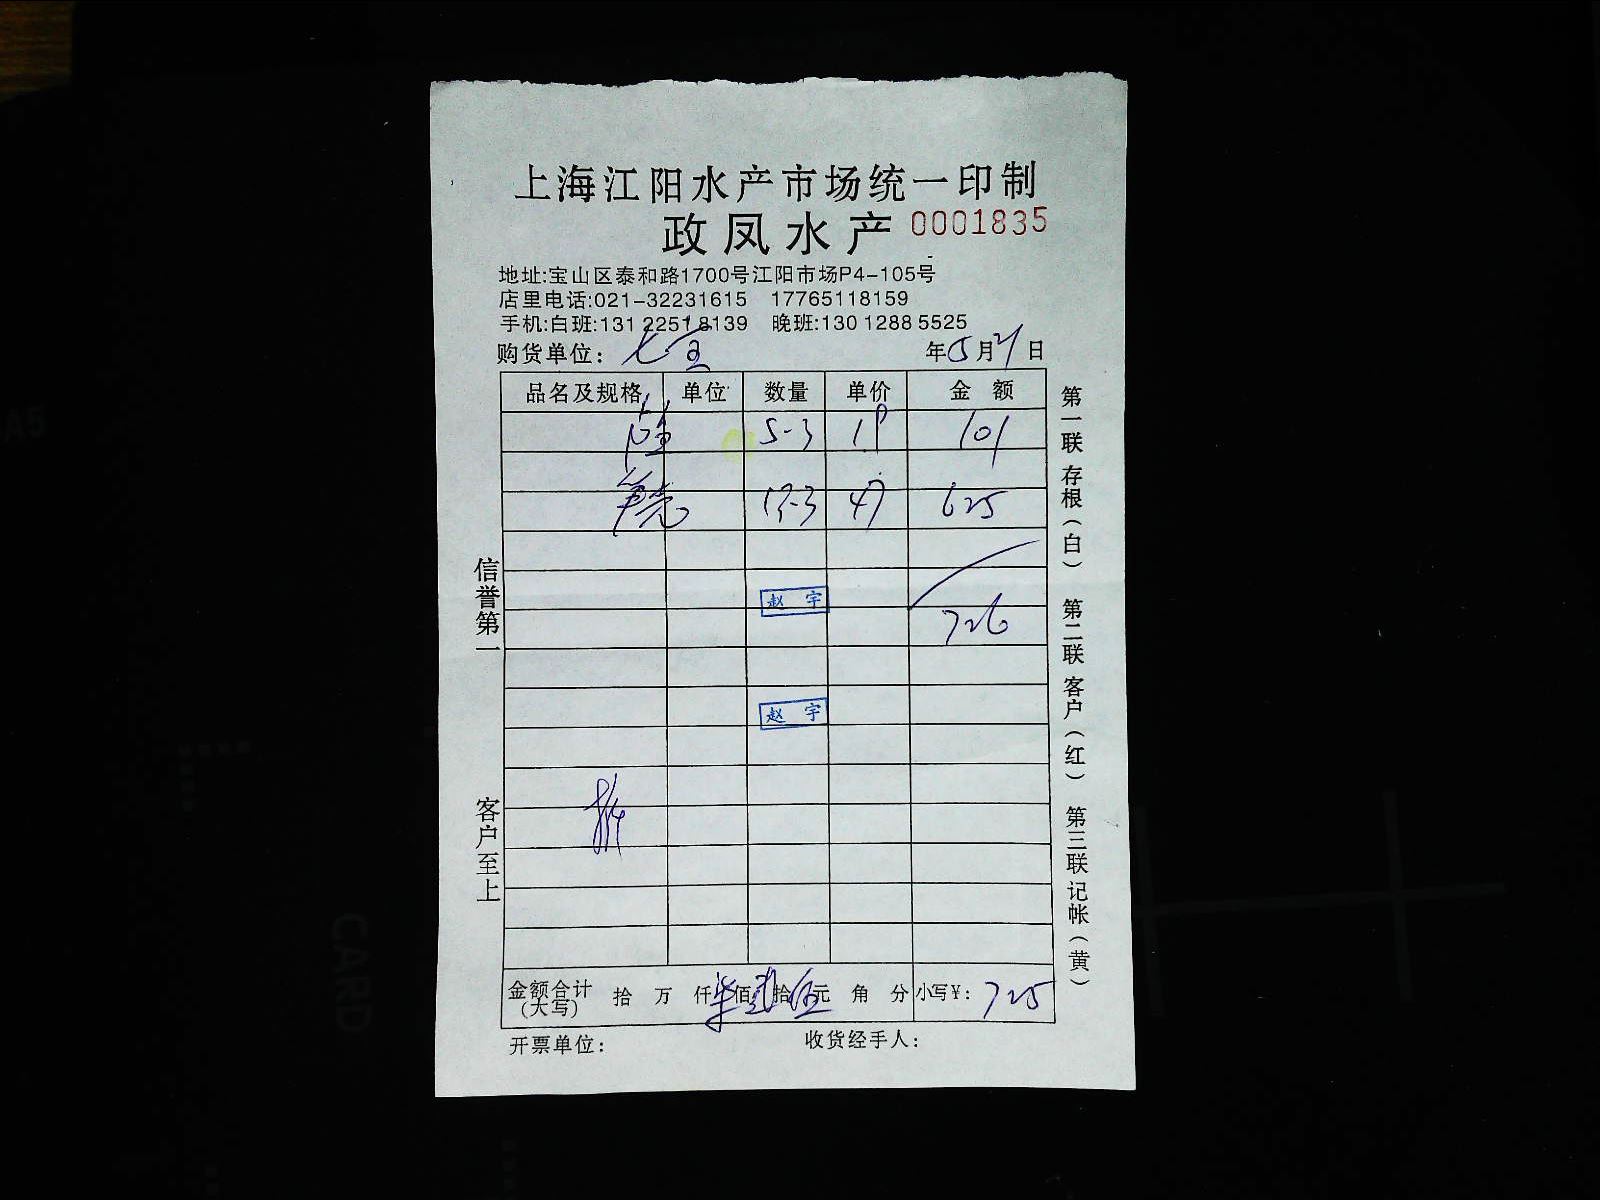 上海江阳水产市场统一印制
政凤水产 0001835
地址:宝山区泰和路1700号江阳市场P4-105号
店里电话:021-32231615 17765118159
手机:白班:131 2251 8139 晚班:130 1288 5525
购货单位: 七宝 年5月21日
品名及规格 单位 数量 单价 金额
5-3 19 101
13-3 47 625
赵宇
726
赵宇
金额合计(大写) 拾 万 仟柒佰贰拾伍元 角 分 小写¥: 725
开票单位: 收货经手人:
信誉第一
客户至上
第一联 存根(白) 第二联 客户(红) 第三联 记帐(黄)